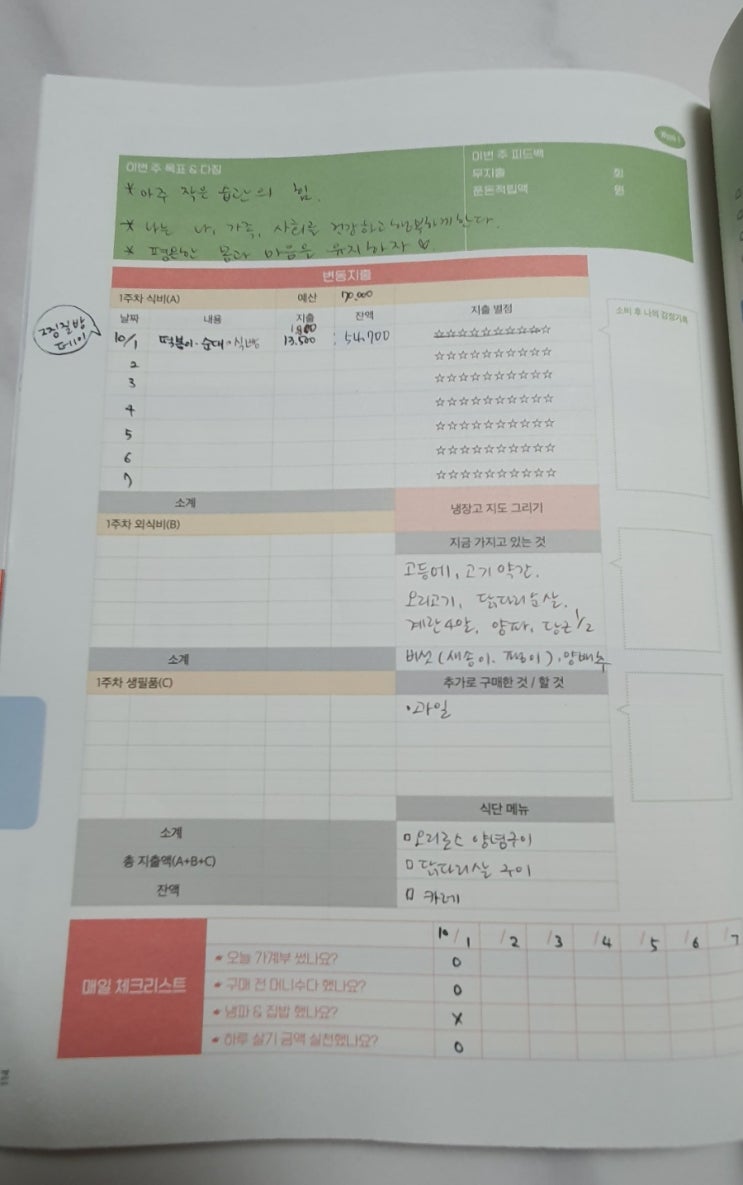 Week 1
이번 주 목표 & 다짐
* 아주 작은 습관의 힘.
* 나는 나, 가족, 사회를 건강하고 행복하게한다.
* 평온한 몸과 마음을 유지하자
이번 주 피드백
무지출 회
푼돈적립액 원
변동지출
1주차 식비(A) 예산 70,000
날짜 내용 지출 잔액 지출 별점
소비 후 나의 감정기록
1,800
10/1 떡볶이·순대·식빵 13,500 54,700 ☆☆☆☆☆☆☆☆☆☆
2 ☆☆☆☆☆☆☆☆☆☆
3 ☆☆☆☆☆☆☆☆☆☆
4 ☆☆☆☆☆☆☆☆☆☆
5 ☆☆☆☆☆☆☆☆☆☆
6 ☆☆☆☆☆☆☆☆☆☆
7 ☆☆☆☆☆☆☆☆☆☆
소계
1주차 외식비(B)
냉장고 지도 그리기
지금 가지고 있는 것
고등어, 고기 약간.
오리고기, 닭다리순살.
계란 4알, 양파, 당근 1/2
버섯(새송이. 팽이), 양배추
소계
1주차 생필품(C)
추가로 구매한 것 / 할 것
·과일
식단 메뉴
□오리로스 양념구이
□닭다리살 구이
□ 카레
소계
총 지출액(A+B+C)
잔액
매일 체크리스트
10/1 /2 /3 /4 /5 /6 /7
오늘 가계부 썼나요? O
구매 전 머니수다 했나요? O
냉파 & 집밥 했나요? X
하루 살기 금액 실천했나요? O
114